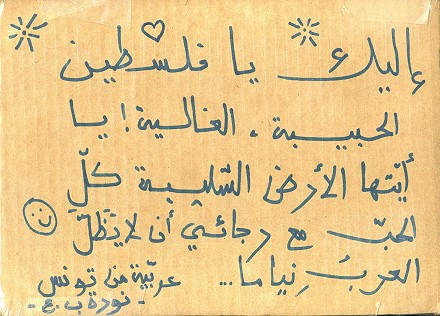 إليك يا فلسطين
الحبيبة، الغالية! يا
أيّتها الأرض السّليبة كلّ
الحبّ مع رجائي أن لا يَظَلّ
العربُ نِياما...
عربيّة من تونس
- نورة ب.ع -